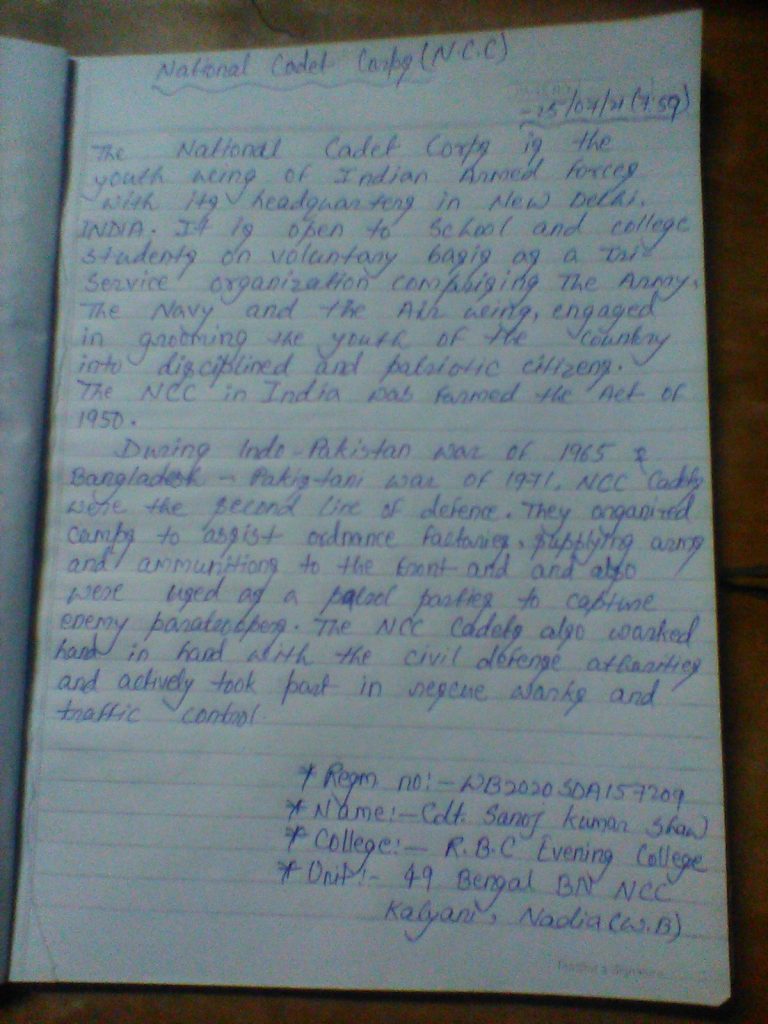 National Cadet Corps (N.C.C)
25/04/21 (7:59)
The National Cadet Corps is the
youth wing of Indian Armed forces
with its headquarters in New Delhi.
INDIA. It is open to School and college
students on voluntary basis as a Tri-
Service organization comprising The Army,
The Navy and the Air wing, engaged
in grooming the youth of the country
into disciplined and patriotic citizens.
The NCC in India was formed the Act of
1950.
During Indo-Pakistan war of 1965 &
Bangladesh - Pakistani war of 1971, NCC Cadets
were the second line of defence. They organized
camps to assist ordnance factories, supplying arms
and ammunitions to the front and and also
were used as a patrol parties to capture
enemy paratroopers. The NCC Cadets also worked
hand in hand with the civil defense athorities
and actively took part in rescue works and
traffic control.
* Regm no:- WB2020SDA157209
* Name:- Cdt. Sanoj Kumar Shaw
* College:- R.B.C Evening College
* Unit:- 49 Bengal BN NCC
Kalyani, Nadia (W.B)